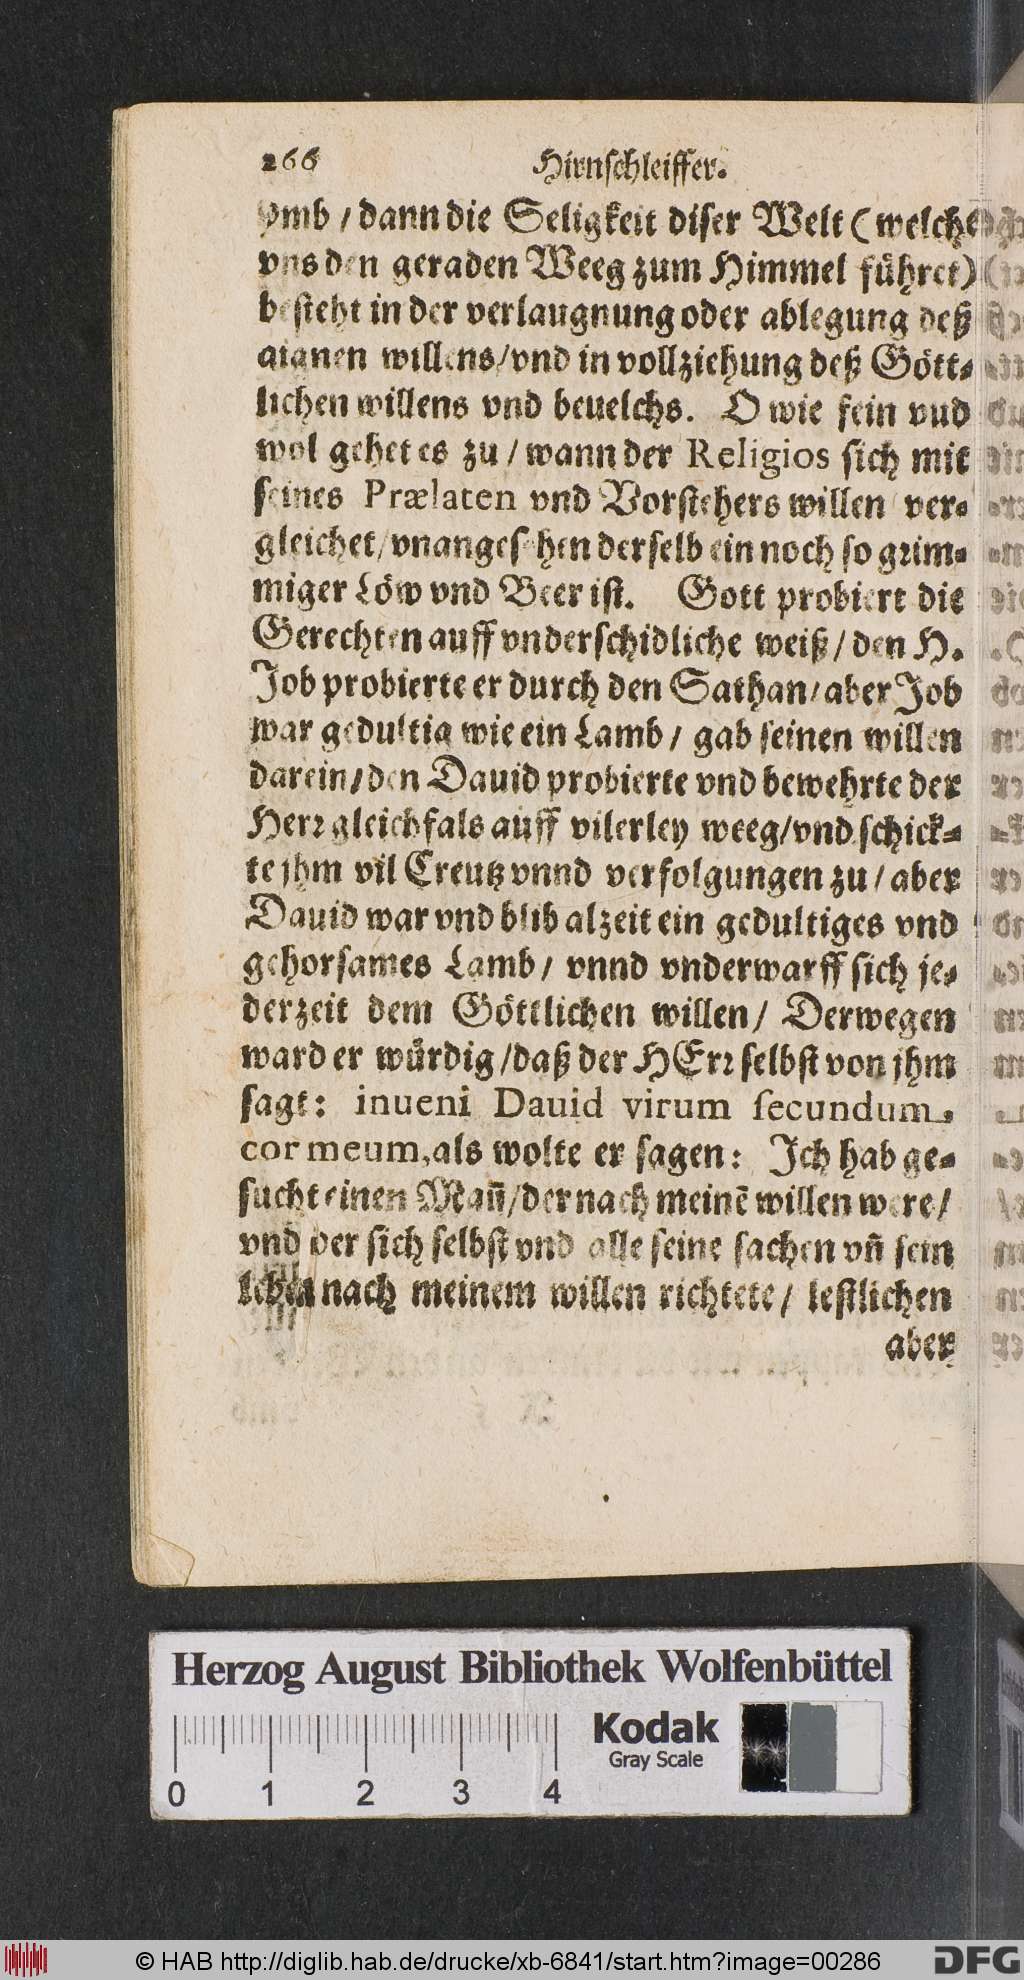 266 Hirnschleiffer.
vmb / dann die Seligkeit diser Welt ( welche
vns den geraden Weeg zum Himmel führet)
besteht in der verlaugnung oder ablegung deß
aignen willens / vnd in vollziehung deß Gött-
lichen willens vnd beuelchs. O wie fein vnd
wol gehet es zu / wann der Religios sich mit
seines Prælaten vnd Vorstehers willen ver-
gleichet / vnangesehen derselb ein noch so grim-
miger Löw vnd Beer ist. Gott probiert die
Gerechten auff vnderschidliche weiß / den H.
Job probierte er durch den Sathan / aber Job
war gedultig wie ein Lamb / gab seinen willen
darein / den Dauid probierte vnd bewehrte der
Herr gleichfals auff vilerley weeg / vnd schick-
te jhm vil Creutz vnnd verfolgungen zu / aber
Dauid war vnd blib alzeit ein gedultiges vnd
gehorsames Lamb / vnnd vnderwarff sich je-
derzeit dem Göttlichen willen / Derwegen
ward er würdig / daß der HErr selbst von jhm
sagt: inueni Dauid virum secundum
cor meum, als wolte er sagen: Ich hab ge-
sucht einen Mañ / der nach meinē willen were /
vnd der sich selbst vnd alle seine sachen vñ sein
leben nach meinem willen richtete / lestlichen
aber
Herzog August Bibliothek Wolfenbüttel
Kodak
Gray Scale
0 1 2 3 4
© HAB http://diglib.hab.de/drucke/xb-6841/start.htm?image=00286
DFG